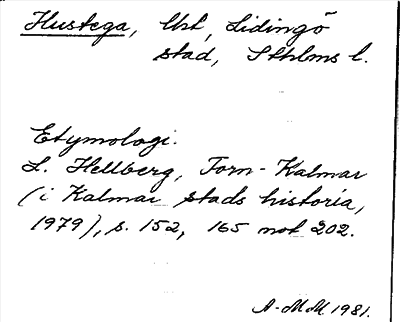 Hustega, Ukt, Lidingö
stad, Sthlms l.
Etymologi.
L. Hellberg, Forn-Kalmar
(i Kalmar stads historia,
1979), s. 152, 165 not 202.
A-MM 1981.